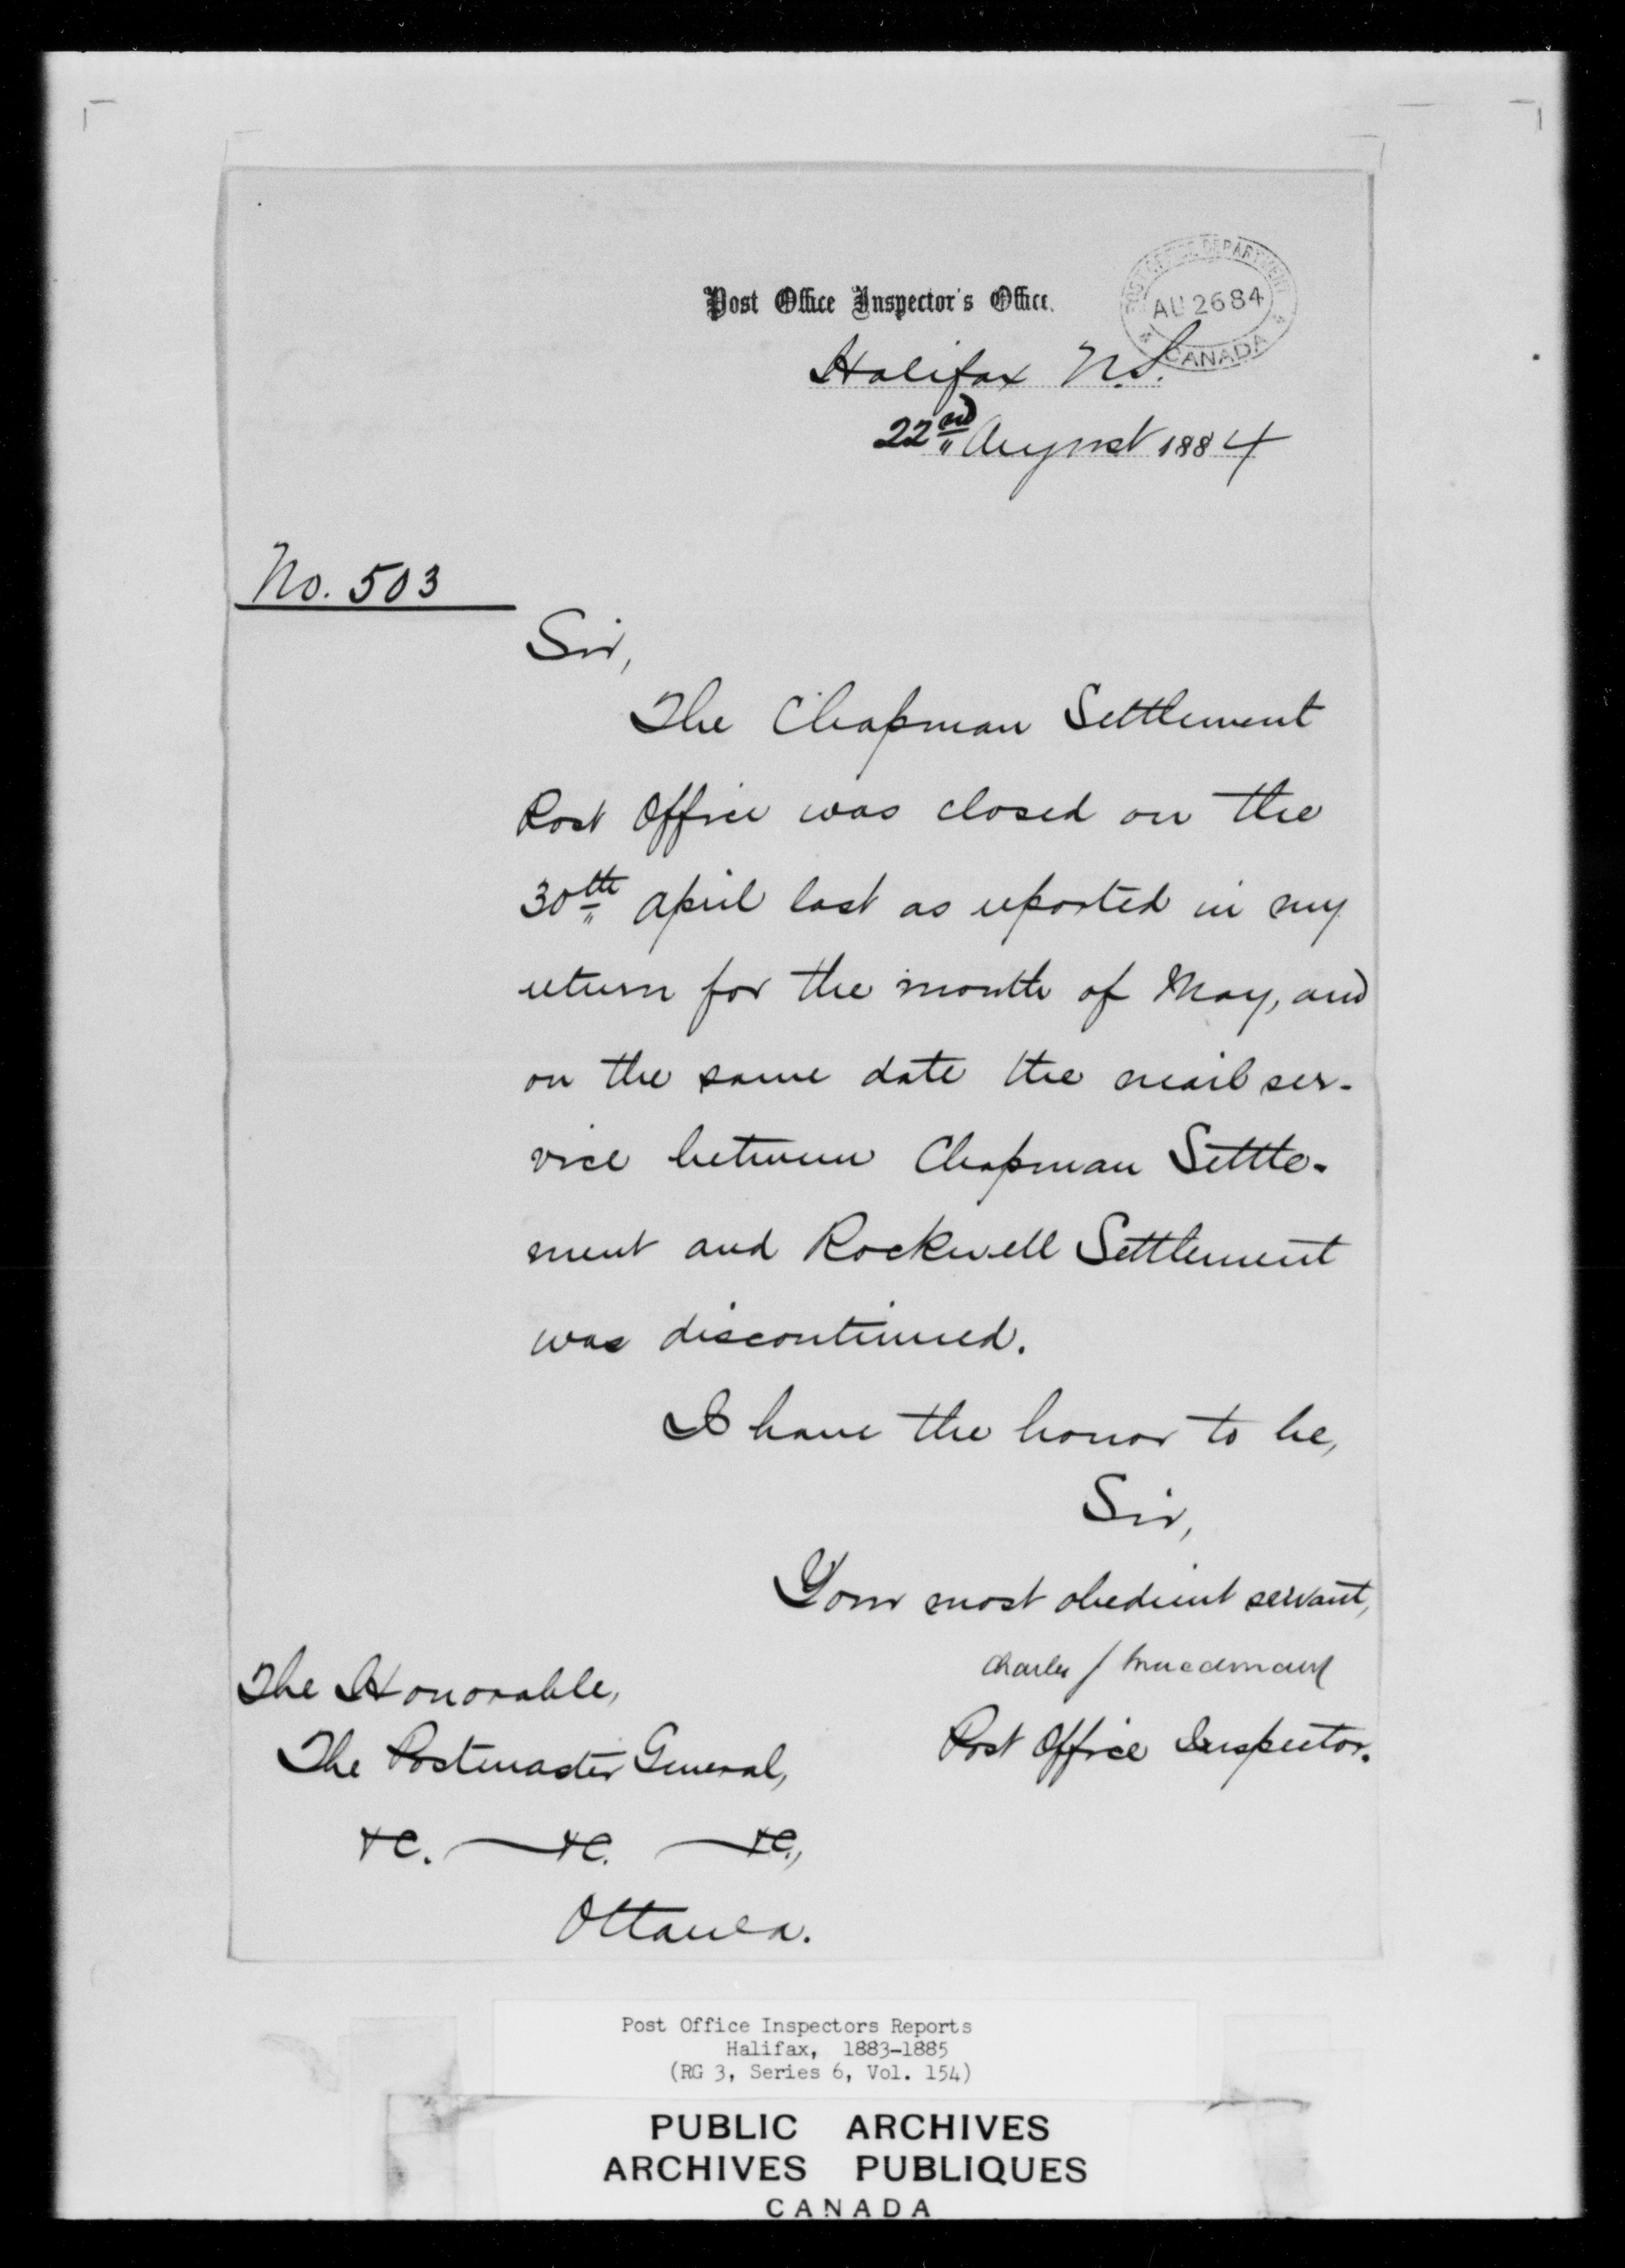 Post Office Inspector's Office.
POST OFFICE DEPARTMENT
AU 26 84
CANADA
Halifax N.S.
22nd August 1884
No. 503
Sir,
The Chapman Settlement
Post Office was closed on the
30th April last as reported in my
return for the month of May, and
on the same date the mail ser-
vice between Chapman Settle-
ment and Rockwell Settlement
was discontinued.
I have the honor to be,
Sir,
Your most obedient servant,
Charles J
Post Office Inspector.
The Honorable,
The Postmaster General,
&c. — &c. — &c.,
Ottawa.
Post Office Inspectors Reports
Halifax, 1883-1885
(RG 3, Series 6, Vol. 154)
PUBLIC ARCHIVES
ARCHIVES PUBLIQUES
CANADA